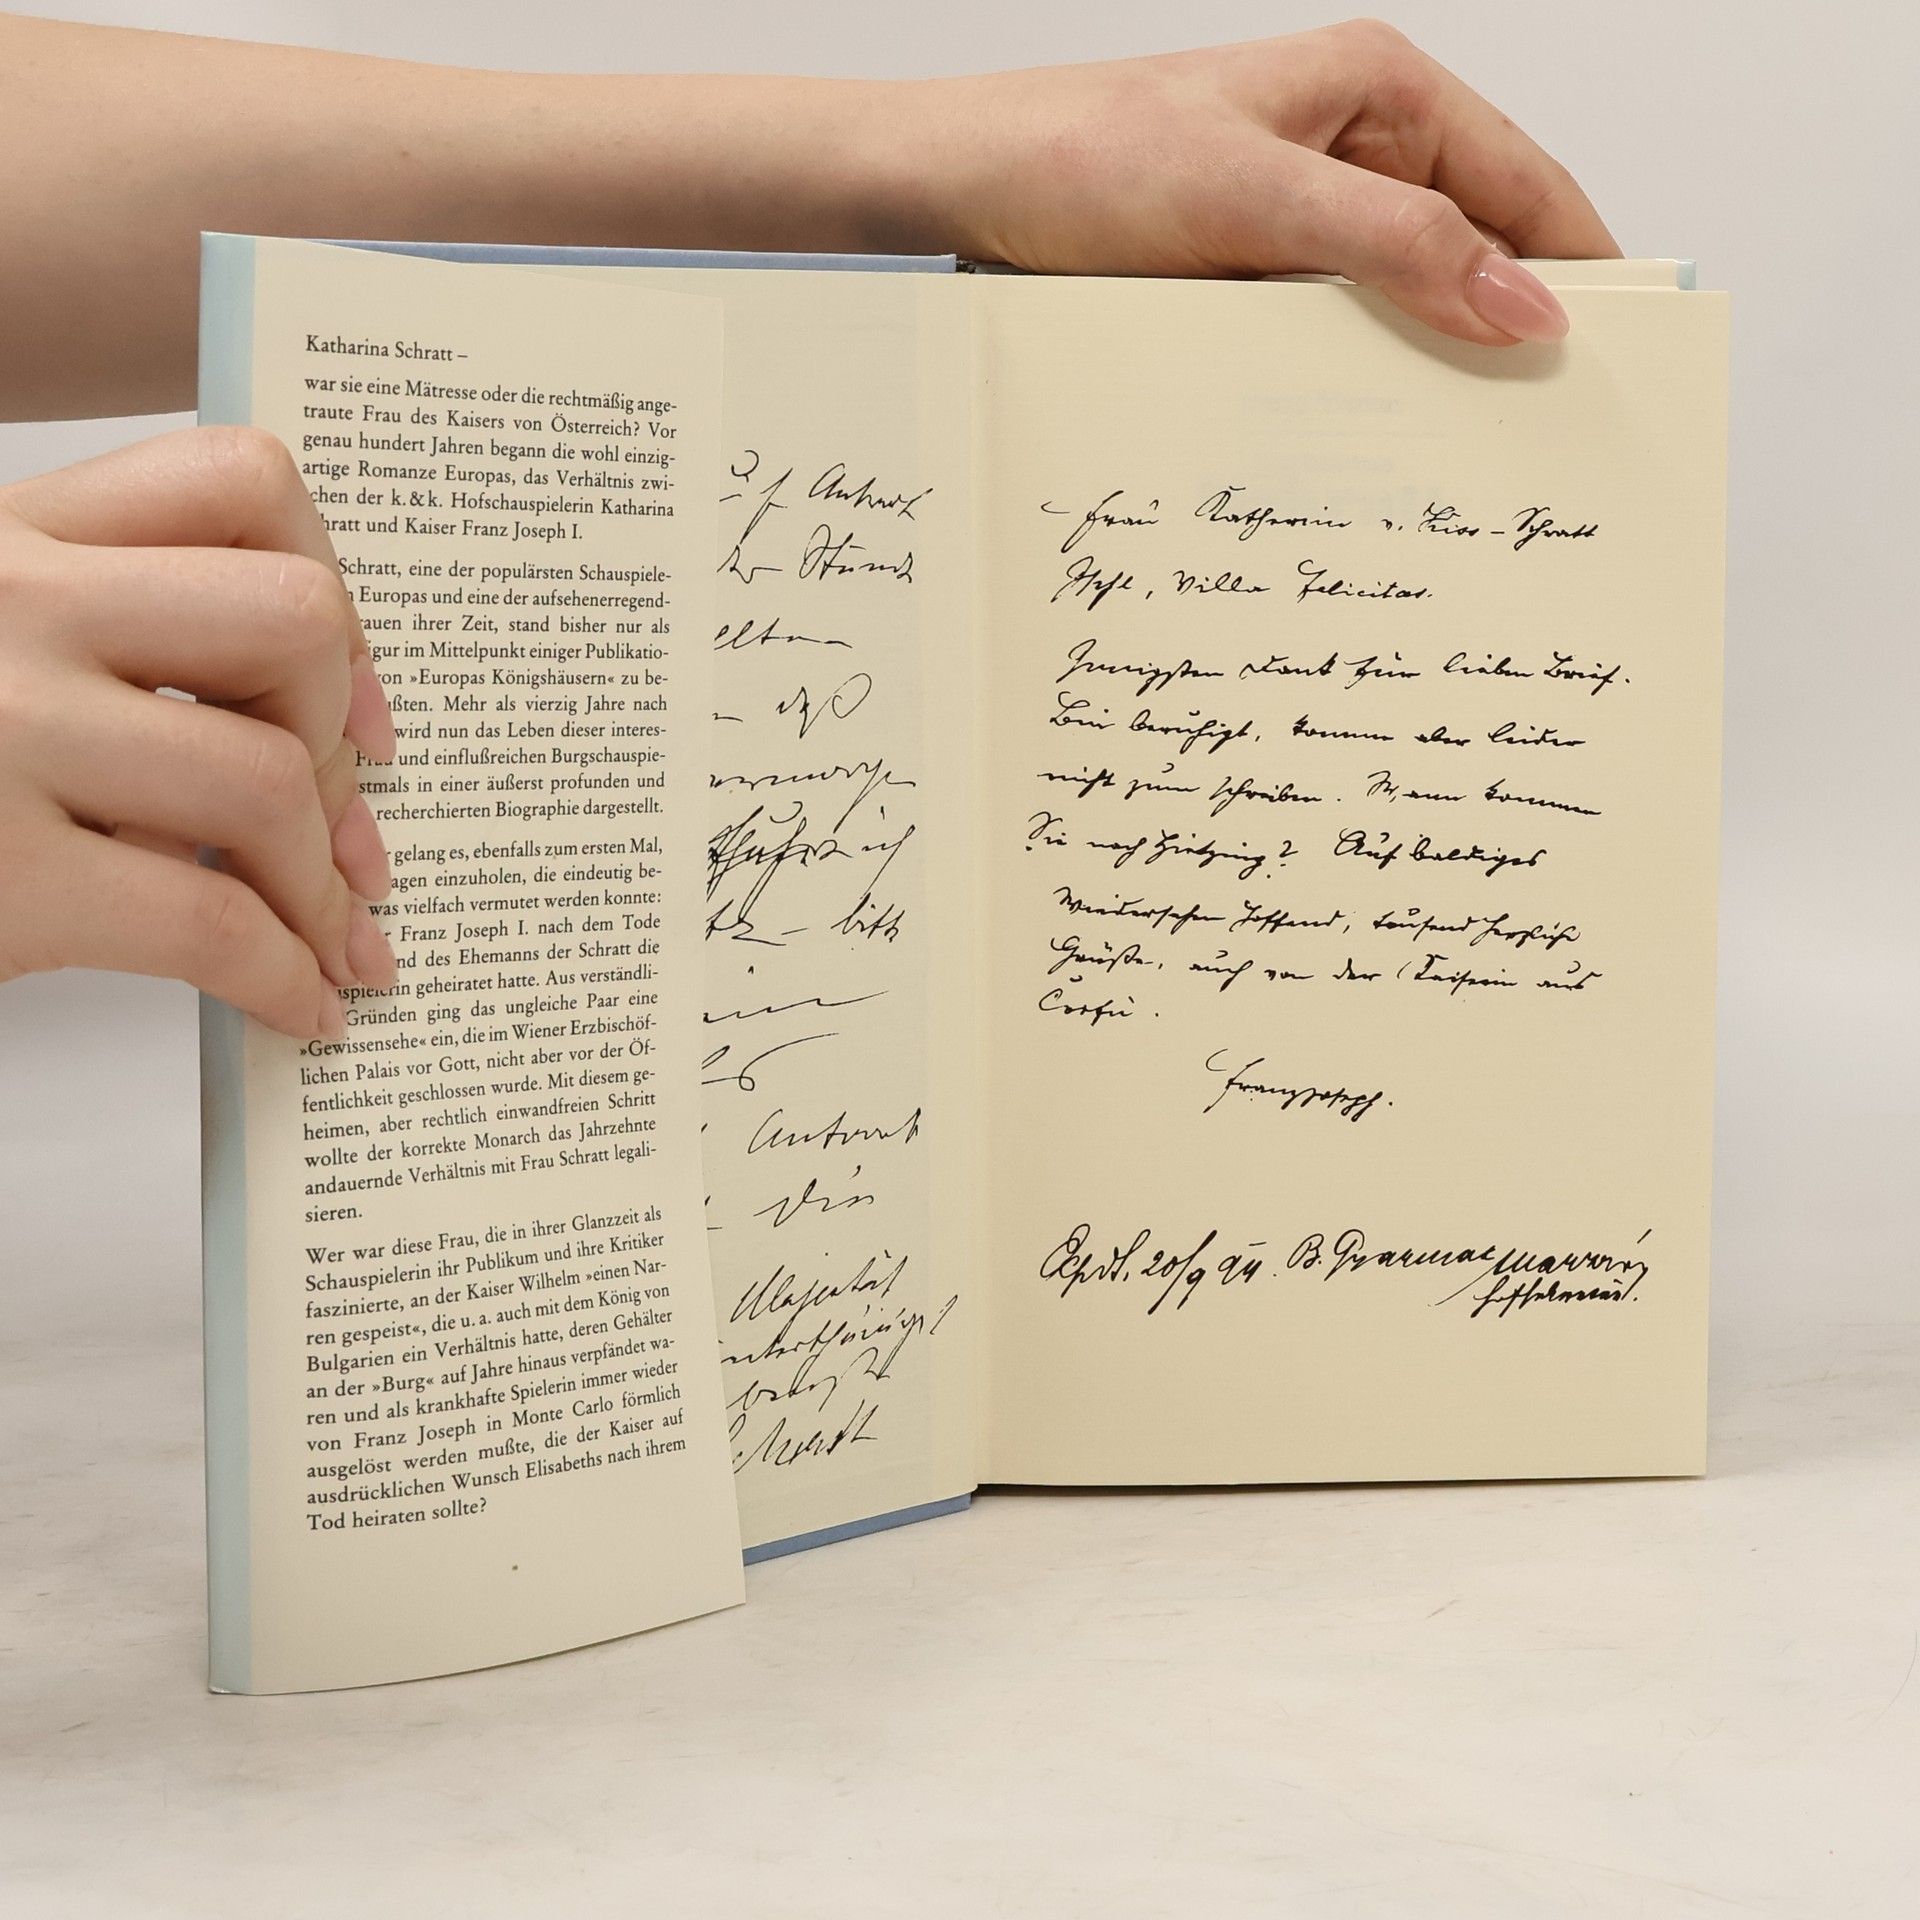 Katharina Schratt –
war sie eine Mätresse oder die rechtmäßig ange-
traute Frau des Kaisers von Österreich? Vor
genau hundert Jahren begann die wohl einzig-
artige Romanze Europas, das Verhältnis zwi-
chen der k. & k. Hofschauspielerin Katharina
hratt und Kaiser Franz Joseph I.
Schratt, eine der populärsten Schauspiele-
Europas und eine der aufsehenerregend-
rauen ihrer Zeit, stand bisher nur als
igur im Mittelpunkt einiger Publikatio-
von »Europas Königshäusern« zu be-
ußten. Mehr als vierzig Jahre nach
wird nun das Leben dieser interes-
Frau und einflußreichen Burgschauspie-
stmals in einer äußerst profunden und
recherchierten Biographie dargestellt.
gelang es, ebenfalls zum ersten Mal,
agen einzuholen, die eindeutig be-
was vielfach vermutet werden konnte:
Franz Joseph I. nach dem Tode
nd des Ehemanns der Schratt die
spielerin geheiratet hatte. Aus verständli-
Gründen ging das ungleiche Paar eine
»Gewissensehe« ein, die im Wiener Erzbischöf-
lichen Palais vor Gott, nicht aber vor der Öf-
fentlichkeit geschlossen wurde. Mit diesem ge-
heimen, aber rechtlich einwandfreien Schritt
wollte der korrekte Monarch das Jahrzehnte
andauernde Verhältnis mit Frau Schratt legali-
sieren.
Wer war diese Frau, die in ihrer Glanzzeit als
Schauspielerin ihr Publikum und ihre Kritiker
faszinierte, an der Kaiser Wilhelm »einen Nar-
ren gespeist«, die u. a. auch mit dem König von
Bulgarien ein Verhältnis hatte, deren Gehälter
an der »Burg« auf Jahre hinaus verpfändet wa-
ren und als krankhafte Spielerin immer wieder
von Franz Joseph in Monte Carlo förmlich
ausgelöst werden mußte, die der Kaiser auf
ausdrücklichen Wunsch Elisabeths nach ihrem
Tod heiraten sollte?
Antwort
Stund
elten
daß
ich
bitt
Antwort
Die
Majestät
Schratt
Frau Katharina v. Kiss-Schratt
Ischl, Villa Felicitas.
Innigsten Dank für lieben Brief.
Bin beruhigt, komme aber leider
nicht zum schreiben. Wann kommen
Sie nach Hietzing? Auf baldiges
Wiedersehen hoffend, tausend herzliche
Grüße, auch von der Kaiserin aus
Corfu.
Franz Joseph.
Expdt. 20/9 94. B.